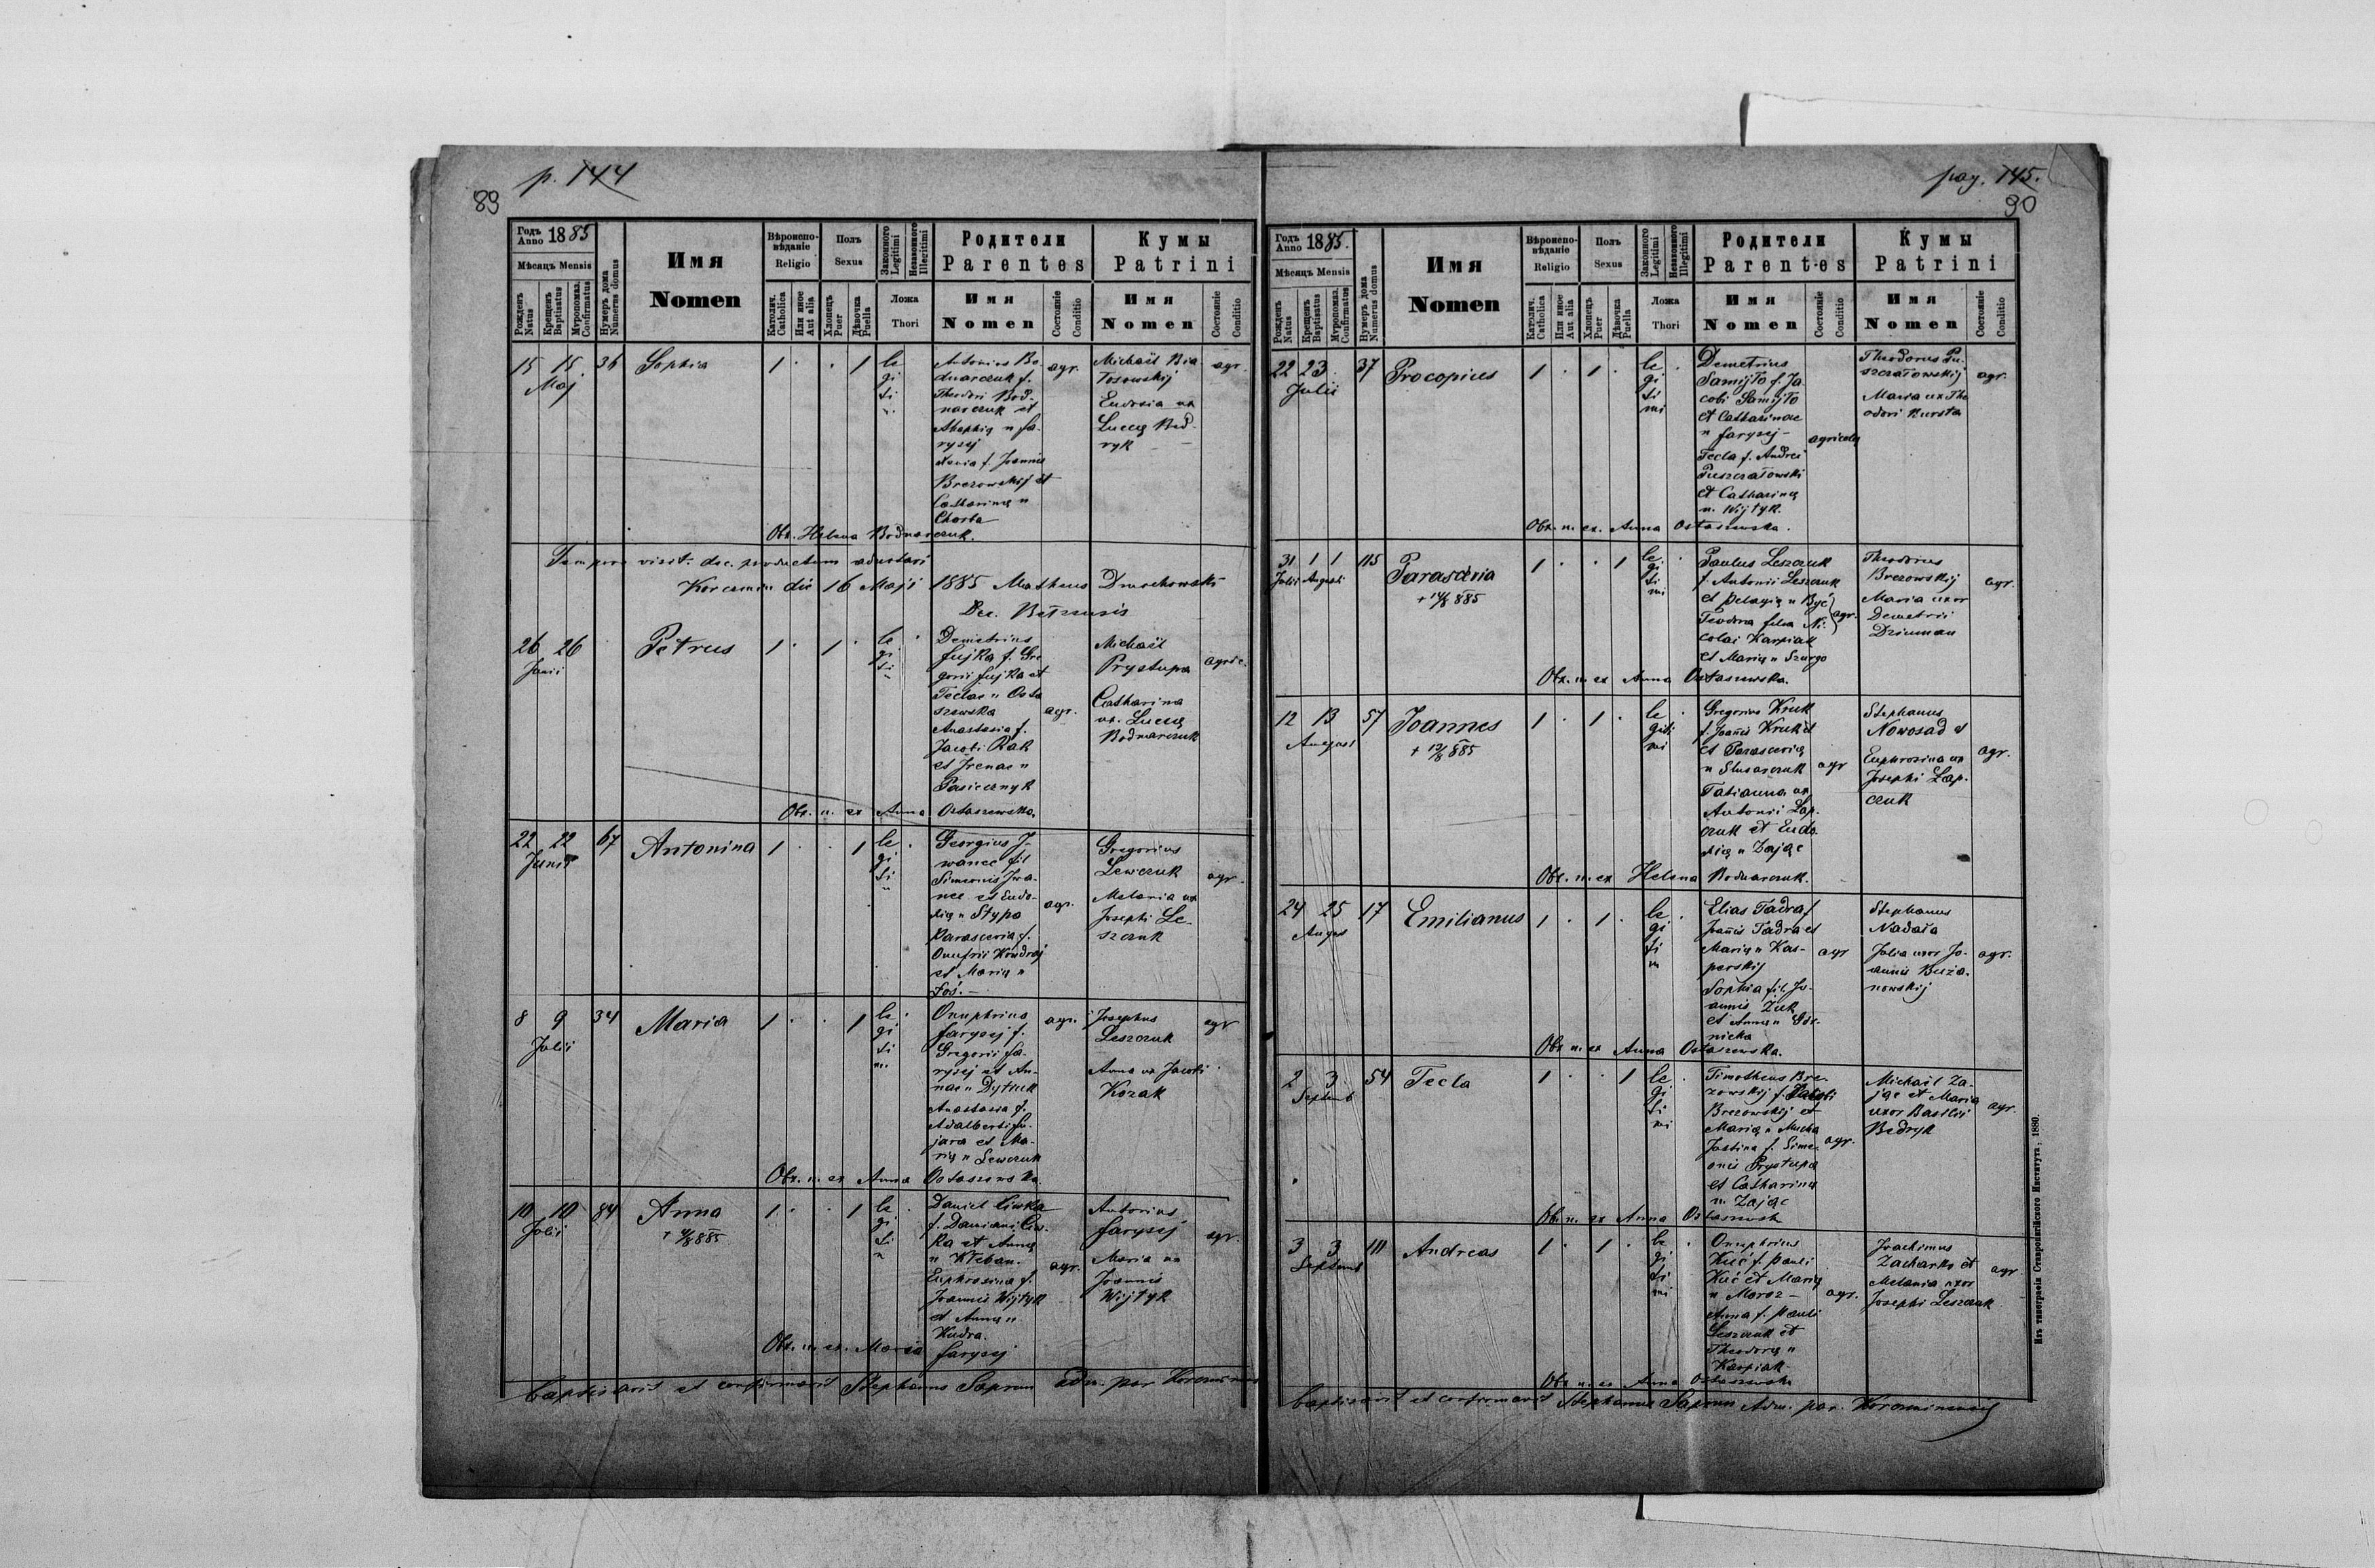 p. 144
89
Годъ Anno 1885
Мѣсяцъ Mensis
Рожденъ Natus
Крещенъ Baptisatus
Мѵропомаз. Confirmatus
Нумеръ дома Numerus domus
Имя
Nomen
Вѣроиспо-
вѣданіе
Religio
Католич. Catholica
Или иное Aut alia
Полъ
Sexus
Хлопецъ Puer
Дѣвочка Puella
Законного Legitimi
Незаконного Illegitimi
Ложа
Thori
Родители
Parentes
Имя
Nomen
Состояніе Conditio
Кумы
Patrini
Имя
Nomen
Состояніе Conditio
15 15 36 Sophia 1 . . 1
Maj
le
gi
ti
Antonius Bo
dnarczuk f.
Theodori Bod-
narczuk et
n Ja-
rysej
f. Joannis
Brezowskij et
Catharinę n
Charta
agr.
Michaił Bia
łosowskij
Eudosia ux
Lucę Bed-
ryk
agr.
Obs. Helena Bodnarczuk.
Tempore visit. dec. productum
die 16 Maji 1885 Matheus
Dec.
26 26 Petrus 1 . 1 .
Junii
le
gi
ti
Demetrius
Jujka f. Gre
gorii Jujka et
Teclae n Osta
szewska
Anastasia f.
Jacobi Rak
et Irenae n
Pasiecznyk
agr.
Michaił
Prystupa
Catharina
ux. Lucę
Bodnarczuk
Obs. n. ex Anna Ostaszewska.
22 22 67 Antonina 1 . . 1
Junii
le
gi
ti
Georgius I-
wanec fil
Simeonis Iwa-
nec et Eudo-
xię n Stypa
Parascevia f.
Onufrii Kondraj
et Marię n
Łoś.
agr.
Gregorius
Lewczuk
Melania ux
Josephi Le-
szczuk
agr.
8 9 34 Maria 1 . . 1
Julii
le
gi
ti
Onuphrius
Jarysej f.
Gregorii Ja-
rysej et An-
nae n
Anastasia f.
Adalberti
et Ma-
rię n Lewczuk
agr.
Josephus
Leszczuk
Anna ux Jacobi
Kozak
agr
Obs. n. ex Anna Ostaszewska
10 10 84 Anna 1 . . 1
Julii
le
gi
ti
Daniel
f. Damiani
et Annę
n Kłeban.
Euphrosina f.
Joannis Wijtyk
et Annę n
Kudra.
agr.
Antonius
Jarysej
Maria ux
Joannis
Wijtyk
agr.
Obs. n. ex. Maria Jarysej
Baptisavit et confirmavit Stephanus Saprun adm. par
pag. 145.
90
Годъ Anno 1885.
Мѣсяцъ Mensis
Рожденъ Natus
Крещенъ Baptisatus
Мѵропомаз. Confirmatus
Нумеръ дома Numerus domus
Имя
Nomen
Вѣроиспо-
вѣданіе
Religio
Католич. Catholica
Или иное Aut alia
Полъ
Sexus
Хлопецъ Puer
Дѣвочка Puella
Законного Legitimi
Незаконного Illegitimi
Ложа
Thori
Родители
Parentes
Имя
Nomen
Состояніе Conditio
Кумы
Patrini
Имя
Nomen
Состояніе Conditio
22 23 37 Procopius 1 . 1 .
Julii
le
gi
ti
mi
Demetrius
Samijło f. Ja
cobi Samijło
et Catharinae
n Jarysej-
Tecla f. Andrei
Puszczałowski
et Catharinę
n. Wijtyk.
agricolę
Theodorus Pu-
szczałowskij
Maria ux The
odori Bursta
agr.
Obs. n. ex. Anna Ostaszewska.
31 1 1 115 Parascevia 1 . . 1
Julii Augusti
le
gi
ti
mi
Paulus Leszczuk
f. Antonii Leszczuk
et Pelagię n Być
Teodora filia Ni-
colai Karpiak
et Marię n Szurgo
agr.
Theodorus
Brezowskij
Maria uxor
Demetrii
Dziuman
agr.
Obs. n. ex Anna Ostaszewska.
12 13 57 Joannes 1 . 1 .
August
le
giti
mi
Gregorius Kruk
f. Joañis Kruk et
et Parascevię
n Slusarczuk
Tatianna ux
Antonii Łap-
czuk et Eudo-
xię n Zając
agr
Stephanus
Nowosad et
Euphrosina ux
Josephi Łap-
czuk
agr.
Obs. n. ex Helena Bodnarczuk.
24 25 17 Emilianus 1 . 1 .
August
le
gi
ti
m
Elias Fadra f
Joañis Fadra et
Marię n Kas-
perskij
Sophia fil. Jo-
annis Żuk
et Annę n Gór-
nicka
agr
Stephanus
Nadała
Julia uxor Jo-
annis Buża-
nowskij
agr.
Obs n. ex Anna Ostaszewska.
2 3 54 Tecla 1 . . 1
Septemb
le
gi
ti
mi
Timotheus Bre-
zowskij f.
Brezowskij et
Marię n Mucha
Justina f. Sime-
onis Prystupa
et Catharinę
n. Zając
agr.
Michaił Za-
jąc et Maria
uxor Basilii
Bedryk
agr.
Obs. n. ex Anna Ostaszewsk
3 3 111 Andreas 1 . 1 .
Septemb
le
gi
ti
mi
Onuphrius
Kuć f. Pauli
Kuć et Marię
n Moroz-
Anna f. Pauli
Leszczuk et
Theodorę n
Karpiak
agr.
Joachimus
Zacharko et
Melania uxor
Josephi Leszczuk
agr
Obs n. ex Anna Ostaszewska
Baptisavit et confirmavit Stephanus Saprun Adm. par.
Изъ типографіи Ставропигійского Института, 1880.